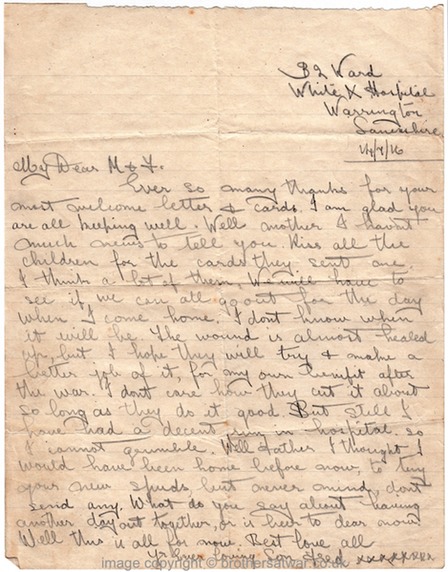 B2 Ward
White X Hospital
Warrington
Lancashire
14/7/16
My Dear M & F.
Ever so many thanks for your
most welcome letter & cards. I am glad you
are all keeping well. Well mother I havnt
much news to tell you. Kiss all the
children for the cards they sent one.
I think a lot of them. We will have to
see if we can all go out for the day
when I come home. I dont know when
it will be. The wound is almost healed
up, but I hope they will try & make a
better job of it, for my own benifit after
the war. I dont care how they cut it about
so long as they do it good. But still I
have had a decent time in hospital, so
I cannot grumble. Well father I thought I
would have been home before now, to try
your new spuds, but never mind, dont
send any. What do you say about having
another day out together, or is beer to dear now
Well this is all for now. Best love all
Yr Ever loving Son Fred xxxxxxxx
image copyright © brothersatwar.co.uk